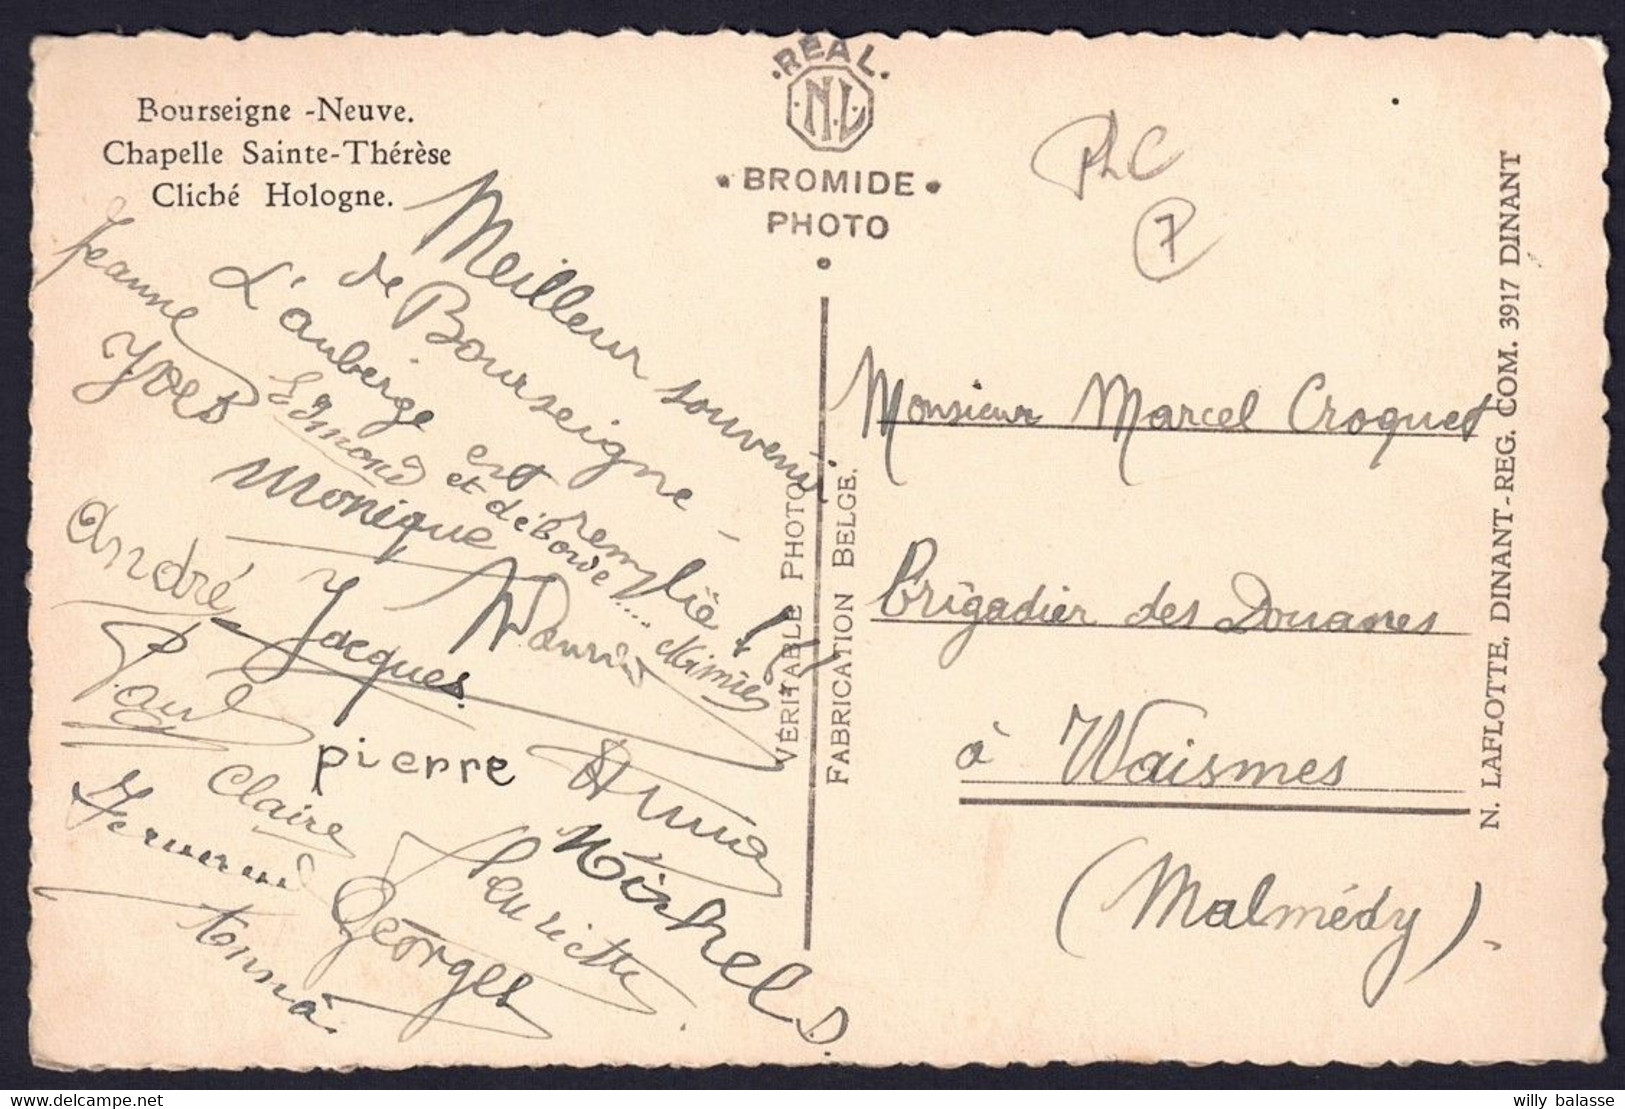 Bourseigne -Neuve.
Chapelle Sainte-Thérèse
Cliché Hologne.
• REAL •
N.L.
• BROMIDE •
PHOTO
PhC
7
Meilleur souvenir
de Bourseigne -
L'auberge est remplie !
et déborde....
Jeanne
Yves
Monique
Mimie
André
Jacques
Paul
pierre
Anna
Claire
Michel
Henriette
Georges
Monsieur Marcel Croquet
Brigadier des Douanes
à Waismes
(Malmédy).
VÉRITABLE PHOTO
FABRICATION BELGE.
N. LAFLOTTE, DINANT-REG. COM. 3917 DINANT
willy balasse